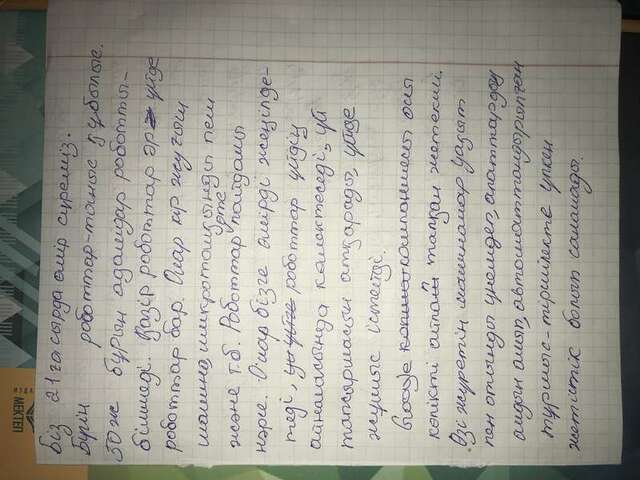 МЕКТЕП
Біз 21 ғасырда өмір сүреміз.
Бүгін роботтар-таныс құбылыс.
50 ж бұрын адамдар роботты-
білмеді. Қазір роботтар әр үйде
роботтар бар. Олар кір жуғыш
машина, микротолқынды пеш
және т.б. Роботтар өте пайдалы
нәрсе. Олар бізге өмірді жеңілде-
теді, роботтар үйдің
айналасында көмектеседі, үй
тапсырмасын атқарады, үйде
жұмыс істейді.
Google компаниясы осы
көлікті ойлап тапқан жетекші.
Өзі жүретін машиналар уақыт
пен отынды үнемдеп, апаттардың
алдын алып, автоматтандырылған
тұрмыс-тіршілекте үлкен
жетістік болып саналады.